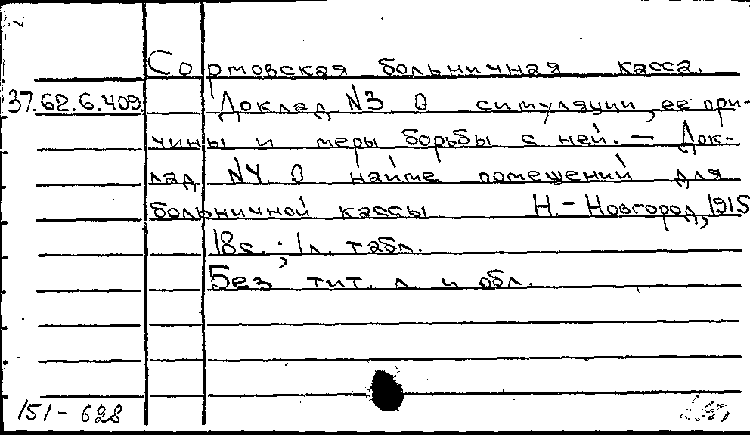 Сормовская больничная касса.
37.62.6.409 Доклад N3. О симуляции, ее при-
чины и меры борьбы с ней. – Док-
лад N4. О найме помещений для
больничной кассы Н.-Новгород, 1915
18с.; 1л. табл.
Без тит. л. и обл.
151-628